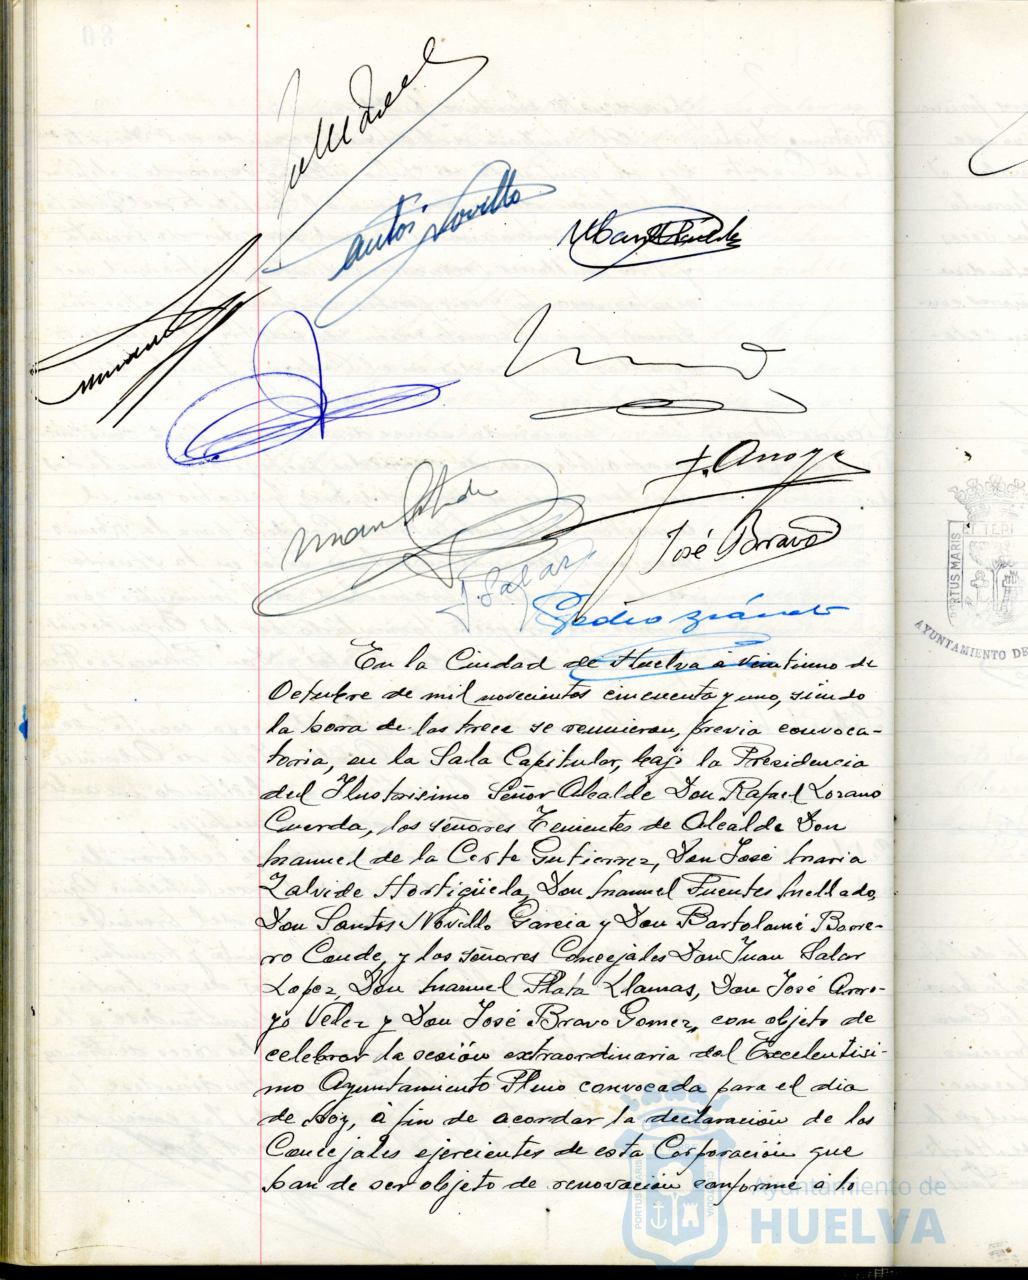 Santos Novillo
J. Arroyo
José Bravo
J. Salar
Pedro
PORTUS MARIS ET TERR
AYUNTAMIENTO DE
En la Ciudad de Huelva a veintiuno de
Octubre de mil novecientos cincuenta y uno, siendo
la hora de las trece se reunieron, previa convoca-
toria, en la Sala Capitular, bajo la Presidencia
del Ilustrisimo Señor Alcalde Don Rafael Lozano
Cuerda, los señores Tenientes de Alcalde Don
Manuel de la Corte Gutierrez, Don José Maria
Zalvide Hortigüela, Don Manuel Fuentes Mellado,
Don Santos Novillo Garcia y Don Bartolomé Borre-
ro Conde, y los señores Concejales Don Juan Salar
Lopez, Don Manuel Plata Llamas, Don José Arro-
yo Velez y Don José Bravo Gomez, con objeto de
celebrar la sesión extraordinaria del Excelentisi-
mo Ayuntamiento Pleno convocada para el dia
de hoy, á fin de acordar la declaración de los
Concejales ejercientes de esta Corporación que
han de ser objeto de renovación conforme á lo
Ayuntamiento de
HUELVA